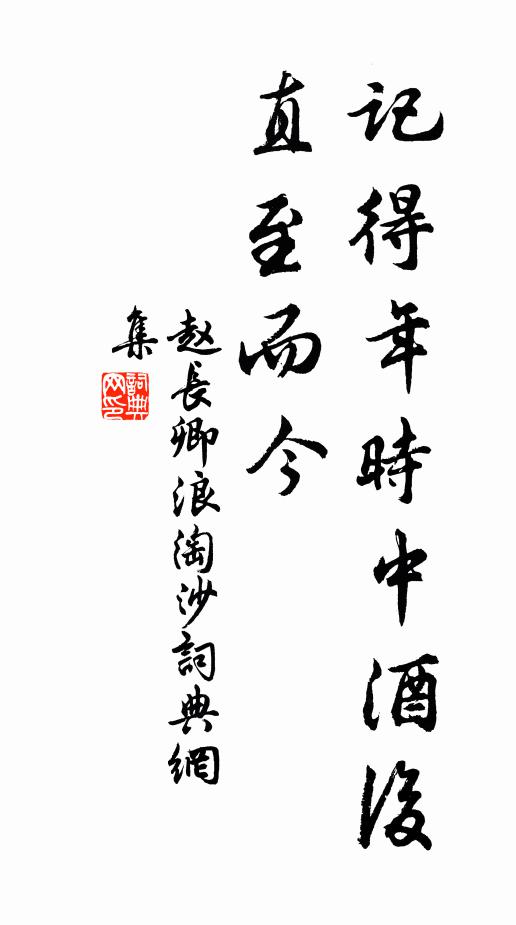 記得年時中酒後
直至而今
赵長卿浪淘沙詞典網
集
詞典
网印